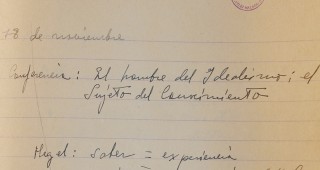 18 de noviembre
Conferencia: El hombre del Idealismo: el
Sujeto del Conocimiento
Hegel: saber = experiencia